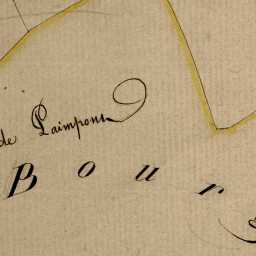 de Paimpont
Bour